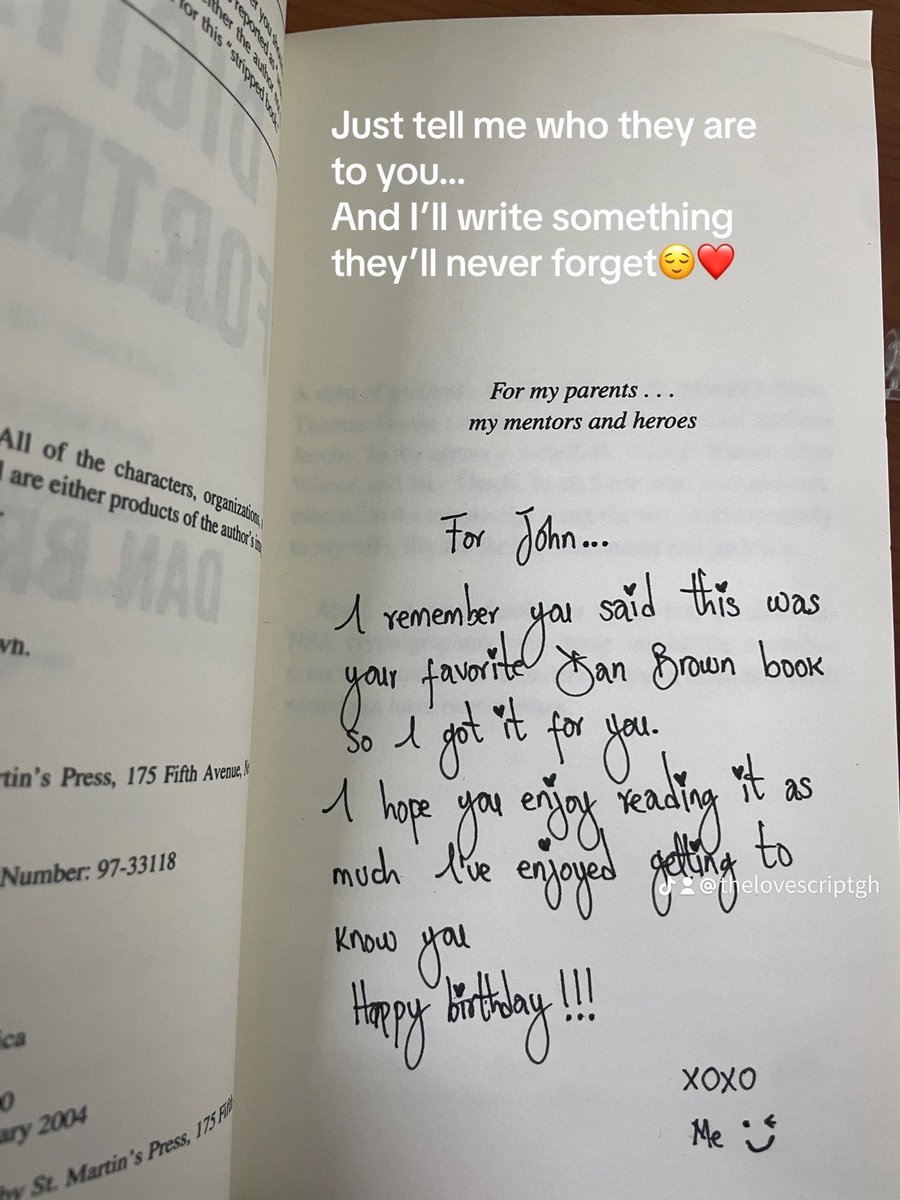 r you sho
reported as
either the author no
for this "stripped book."
DIGIT
FORTR
DAN BR
All of the characters, organizations,
are either products of the author's
wn.
rtin's Press, 175 Fifth Avenue, Ne
Number: 97-33118
ica
ary 2004
by St. Martin's Press, 175 Fifth
Just tell me who they are
to you...
And I'll write something
they'll never forget😌❤️
For my parents . . .
my mentors and heroes
For John...
I remember you said this was
your favorite Dan Brown book
so I got it for you.
I hope you enjoy reading it as
much I've enjoyed getting to
know you
Happy birthday!!!
@thelovescriptgh
XOXO
Me